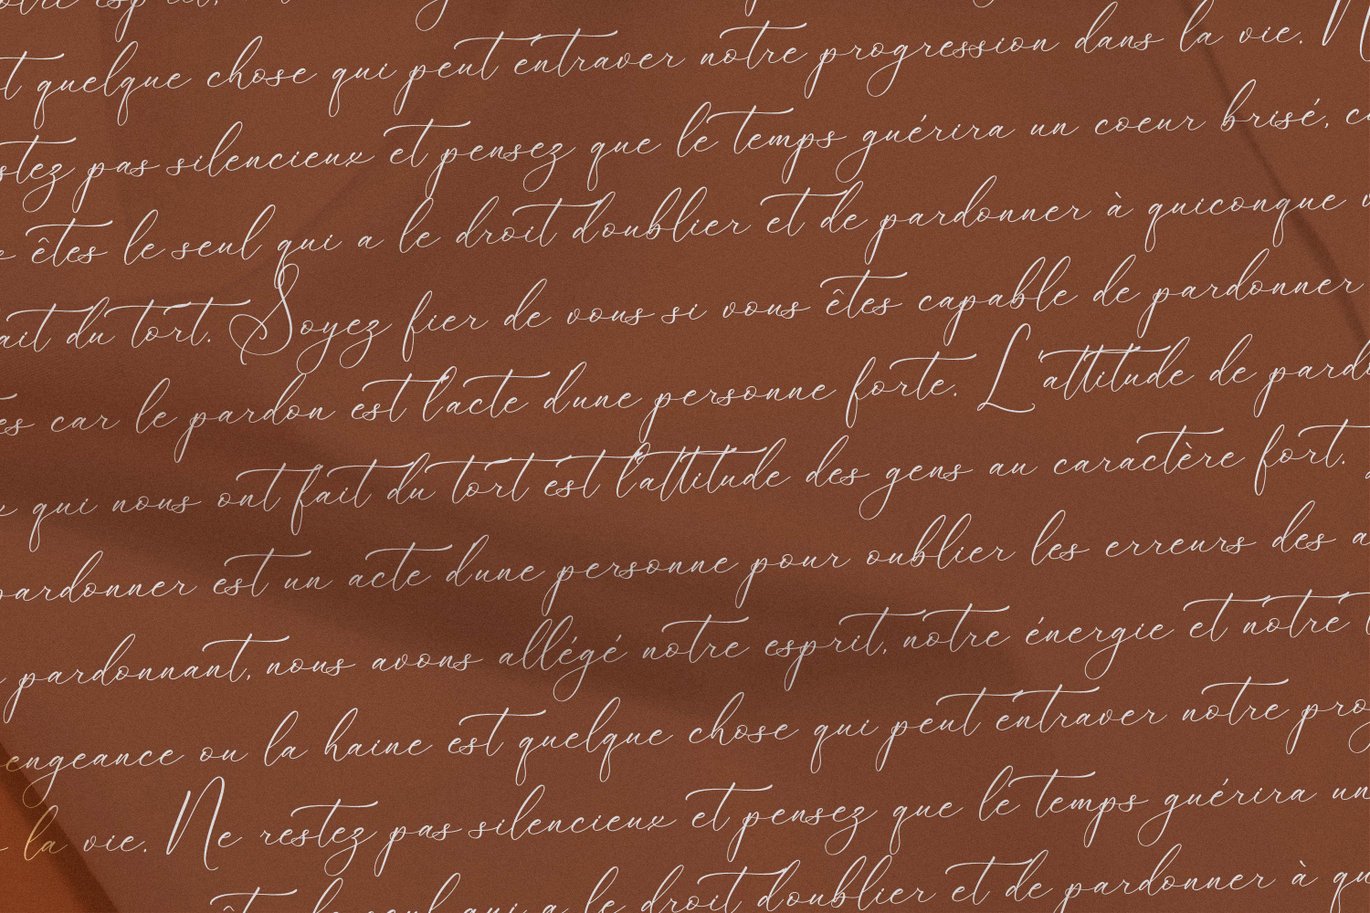 notre esprit,
t quelque chose qui peut entraver notre progression dans la vie. N
stez pas silencieux et pensez que le temps guérira un coeur brisé, c
êtes le seul qui a le droit doublier et de pardonner à quiconque
ait du tort. Soyez fier de vous si vous êtes capable de pardonner
es car le pardon est l'acte dune personne forte. L'attitude de pard
x qui nous ont fait du tort est l'attitude des gens au caractère fort.
pardonner est un acte dune personne pour oublier les erreurs des a
pardonnant, nous avons allégé notre esprit, notre énergie et notre
engeance ou la haine est quelque chose qui peut entraver notre pro
la vie. Ne restez pas silencieux et pensez que le temps guérira un
êt le seul qui a le droit doublier et de pardonner à qu